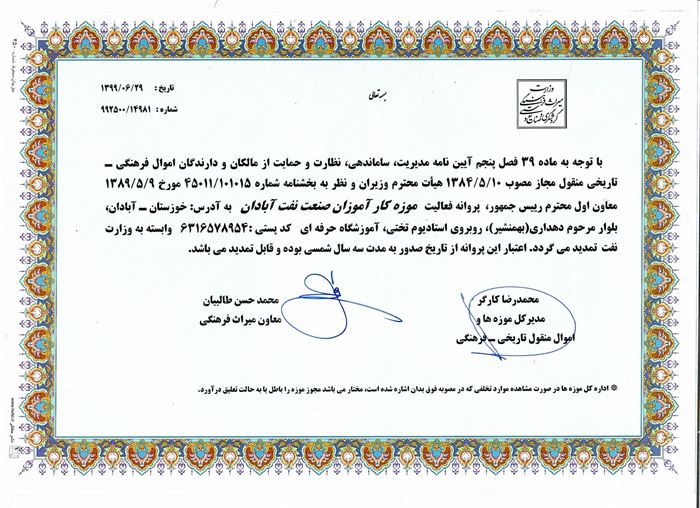 بسمه تعالی
وزارت
میراث فرهنگی
گردشگری و صنایع دستی
تاریخ : ۱۳۹۹/۰۶/۲۹
شماره : ۹۹۲۵۰۰/۱۴۹۸۱
با توجه به ماده ۳۹ فصل پنجم آیین نامه مدیریت، ساماندهی، نظارت و حمایت از مالکان و دارندگان اموال فرهنگی ـ
تاریخی منقول مجاز مصوب ۱۳۸۴/۵/۱۰ هیأت محترم وزیران و نظر به بخشنامه شماره ۴۵۰۱۱/۱۰۱۰۱۵ مورخ ۱۳۸۹/۵/۹
معاون اول محترم رییس جمهور، پروانه فعالیت موزه کارآموزان صنعت نفت آبادان به آدرس: خوزستان ـ آبادان،
بلوار مرحوم دهداری(بهمنشیر)، روبروی استادیوم تختی، آموزشگاه حرفه ای کد پستی :۶۳۱۶۵۷۸۹۵۴ وابسته به وزارت
نفت تمدید می گردد. اعتبار این پروانه از تاریخ صدور به مدت سه سال شمسی بوده و قابل تمدید می باشد.
محمدرضا کارگر
مدیرکل موزه ها و
اموال منقول تاریخی ـ فرهنگی
محمد حسن طالبیان
معاون میراث فرهنگی
※ اداره کل موزه ها در صورت مشاهده موارد تخلفی که در مصوبه فوق بدان اشاره شده است، مختار می باشد مجوز موزه را باطل یا به حالت تعلیق درآورد.